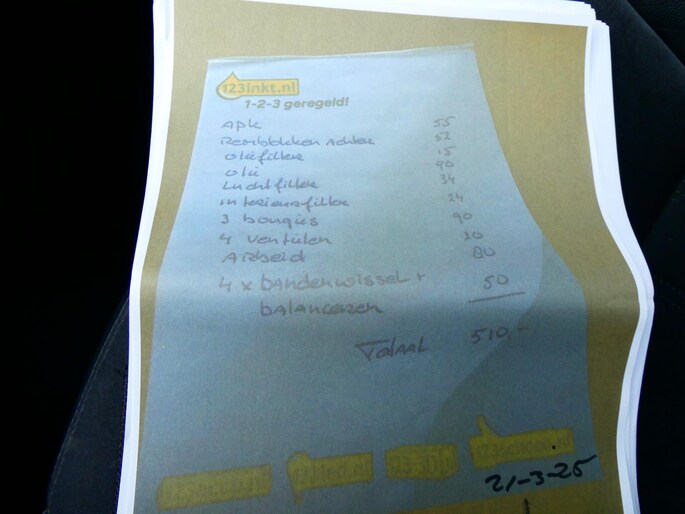 123inkt.nl
1-2-3 geregeld!
APK 55
Remblokken achter 52
oliefilter 15
olie 90
Luchtfilter 34
interieurfilter 24
3 bougies 90
4 ventielen 20
Arbeid 80
4 x bandenwissel + 50
balanceren
Totaal 510,-
123led.nl
21-3-25